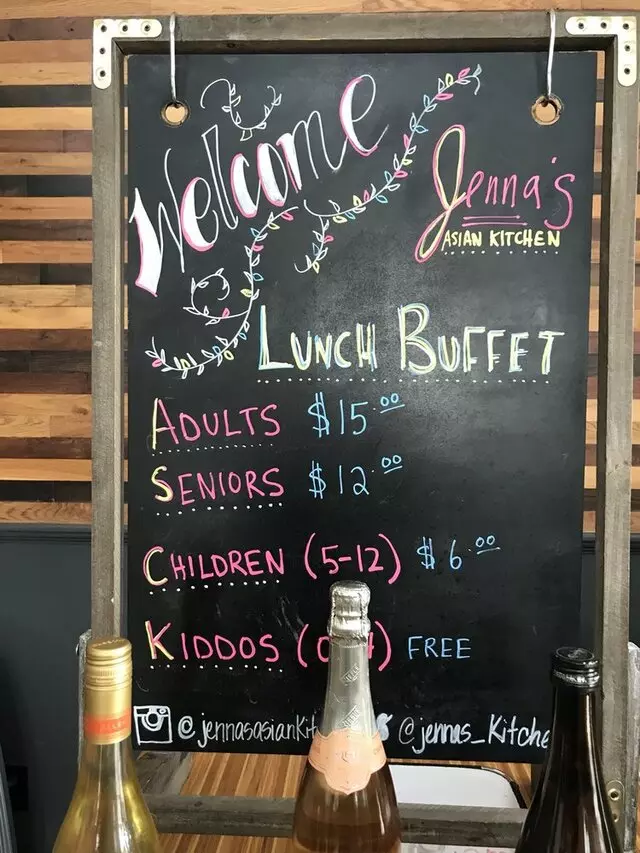 Welcome
Jenna's
ASIAN KITCHEN
LUNCH BUFFET
ADULTS $15.00
SENIORS $12.00
CHILDREN (5-12) $6.00
KIDDOS FREE
@jennasasianKit @jennas_Kitche